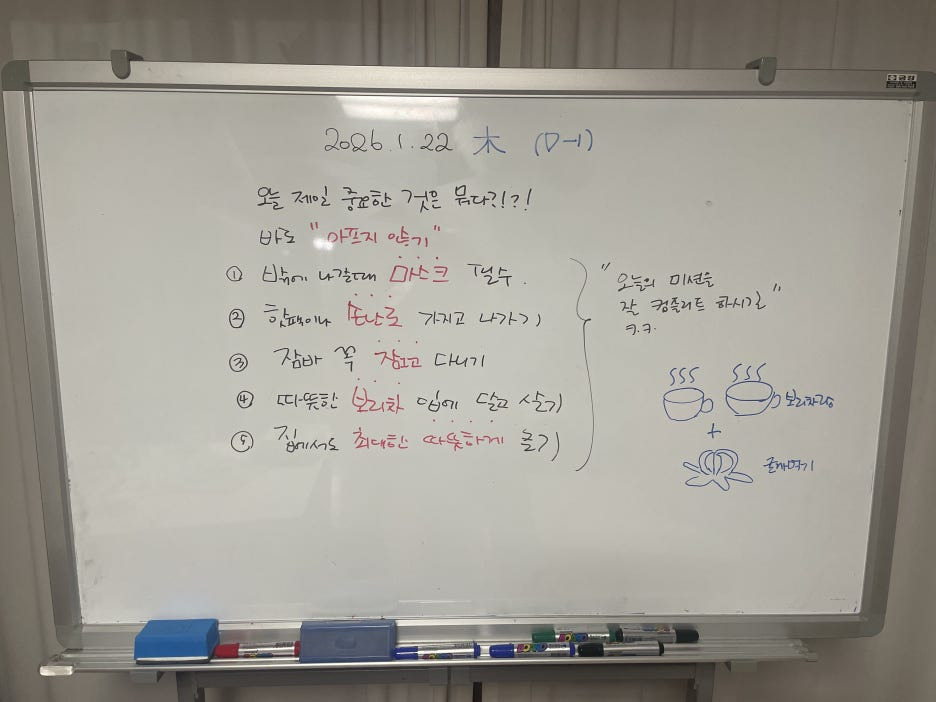 2026.1.22 木 (D-1)
오늘 제일 중요한 것은 뭐다?!?!
바로 "아프지 않기"
① 밖에 나갈때 마스크 필수.
② 핫팩이나 손난로 가지고 나가기
③ 잠바 꼭 잠그고 다니기
④ 따뜻한 보리차 입에 달고 살기
⑤ 집에서도 최대한 따뜻하게 놀기
"오늘의 미션을
잘 컴플리트 하시길"
ㅋ.ㅋ.
보리차랑
+
귤까먹기